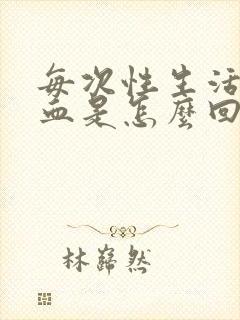 每次性生活
血是怎麼回
林巋然